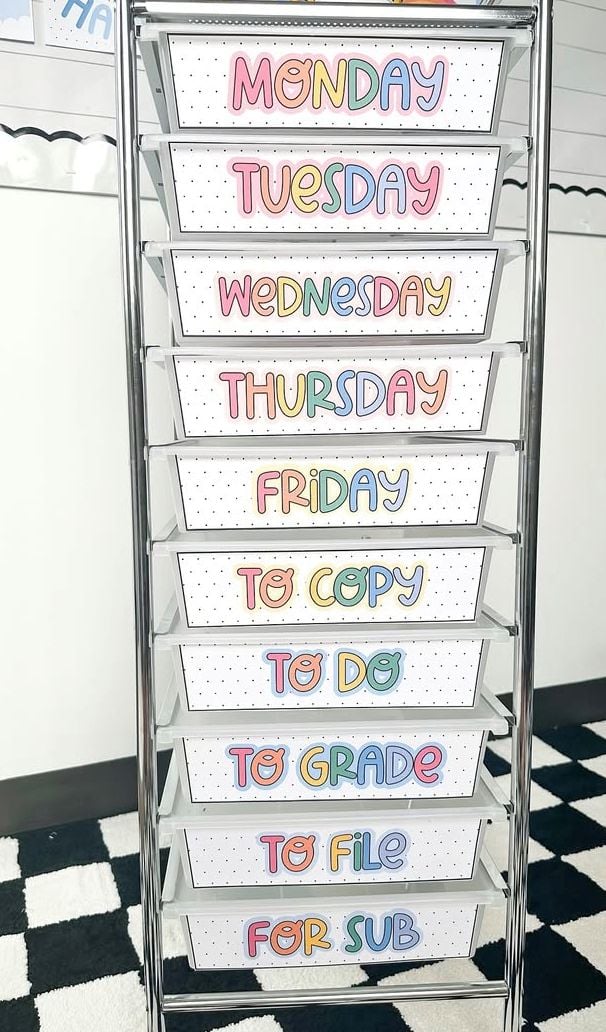 HA
MONDAY
TUeSDAY
WeDNeSDAY
THURSDAY
FRiDAY
TO COPY
TO DO
TO GRADe
TO FiLe
FOR SUB